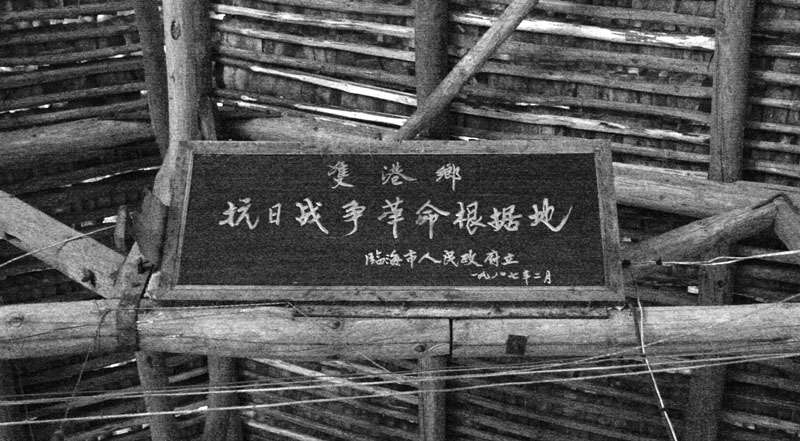 隻港鄉
抗日战争革命根据地
临海市人民政府立
一九八七年二月